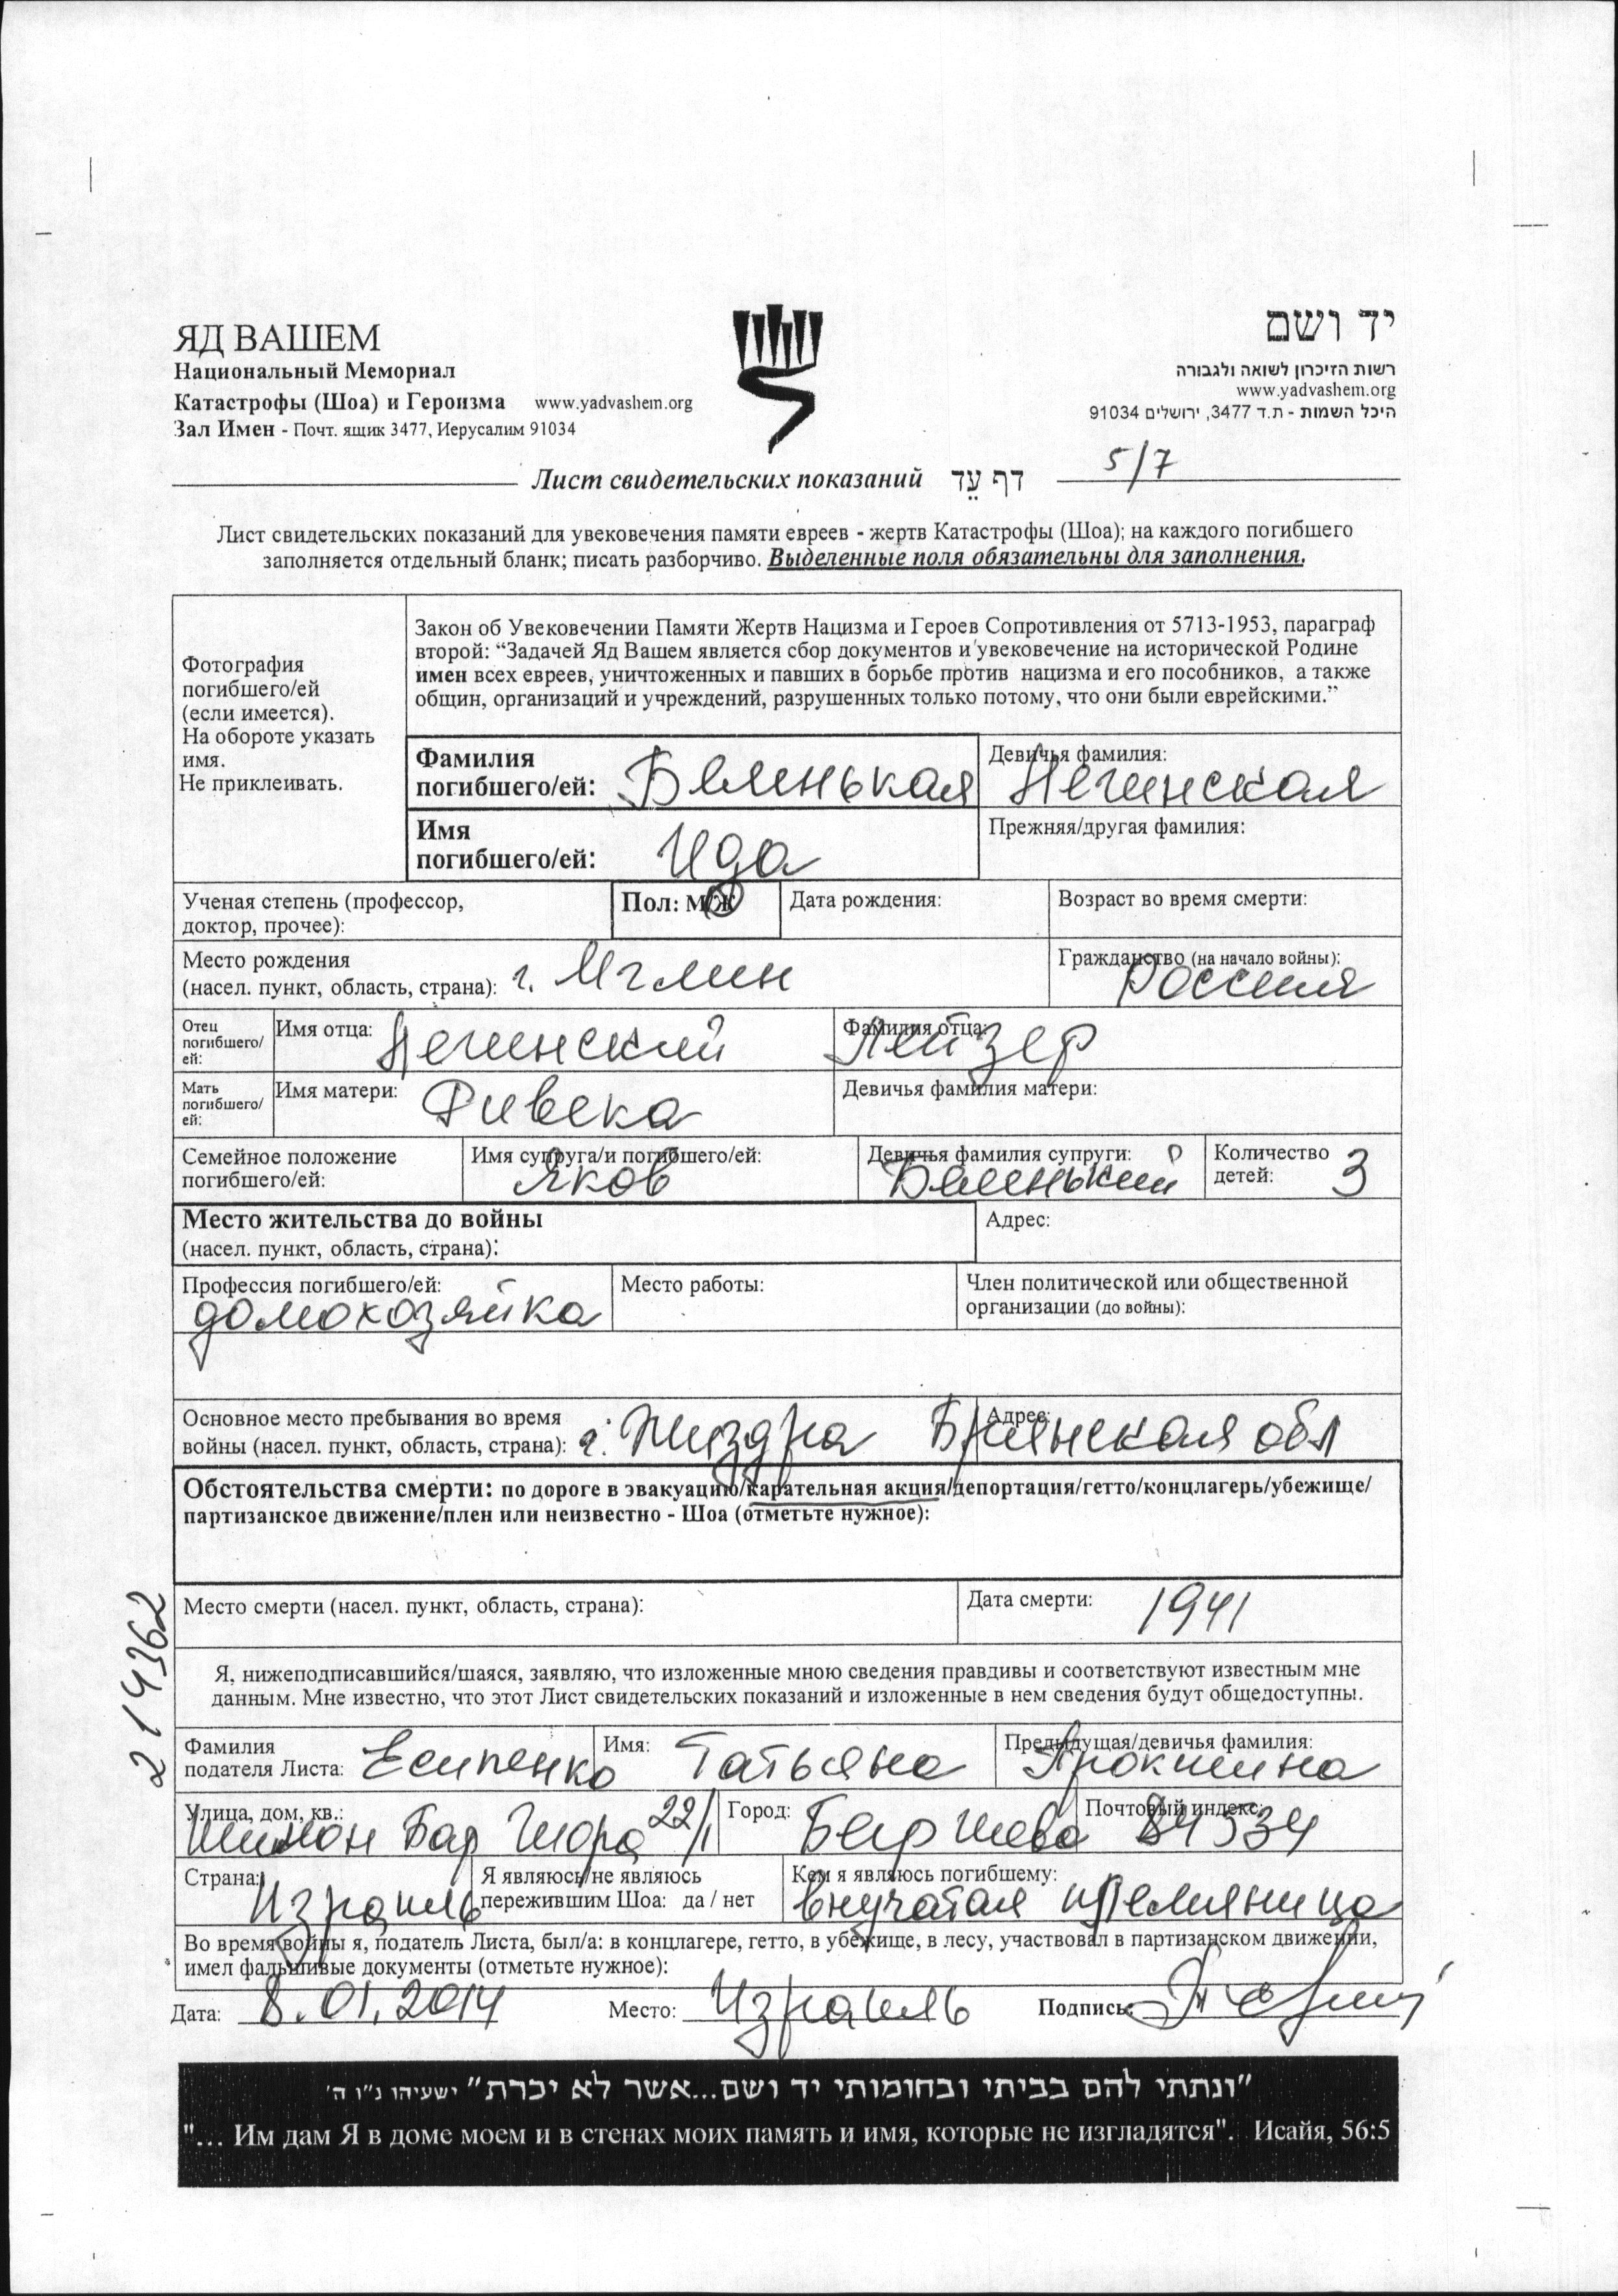 ЯД ВАШЕМ
Национальный Мемориал
Катастрофы (Шоа) и Героизма www.yadvashem.org
Зал Имен - Почт. ящик 3477, Иерусалим 91034
יד ושם
רשות הזיכרון לשואה ולגבורה
www.yadvashem.org
היכל השמות - ת.ד 3477, ירושלים 91034
Лист свидетельских показаний דף עֵד 5/7
Лист свидетельских показаний для увековечения памяти евреев - жертв Катастрофы (Шоа); на каждого погибшего
заполняется отдельный бланк; писать разборчиво. Выделенные поля обязательны для заполнения.
Фотография
погибшего/ей
(если имеется).
На обороте указать
имя.
Не приклеивать.
Закон об Увековечении Памяти Жертв Нацизма и Героев Сопротивления от 5713-1953, параграф
второй: “Задачей Яд Вашем является сбор документов и увековечение на исторической Родине
имен всех евреев, уничтоженных и павших в борьбе против нацизма и его пособников, а также
общин, организаций и учреждений, разрушенных только потому, что они были еврейскими.”
Фамилия
погибшего/ей: Беленькая
Девичья фамилия:
Негинская
Имя
погибшего/ей: Ида
Прежняя/другая фамилия:
Ученая степень (профессор,
доктор, прочее):
Пол: М/Ж
Дата рождения:
Возраст во время смерти:
Место рождения
(насел. пункт, область, страна): г. Мглин
Гражданство (на начало войны):
Россия
Отец
погибшего/
ей:
Имя отца: Негинский
Фамилия отца:
Лейзер
Мать
погибшего/
ей:
Имя матери: Ривека
Девичья фамилия матери:
Семейное положение
погибшего/ей:
Имя супруга/и погибшего/ей:
Яков
Девичья фамилия супруги:
Беленький
Количество
детей: 3
Место жительства до войны
(насел. пункт, область, страна):
Адрес:
Профессия погибшего/ей:
домохозяйка
Место работы:
Член политической или общественной
организации (до войны):
Основное место пребывания во время
войны (насел. пункт, область, страна): г. Жиздра Брянская обл
Адрес:
Обстоятельства смерти: по дороге в эвакуацию/карательная акция/депортация/гетто/концлагерь/убежище/
партизанское движение/плен или неизвестно - Шоа (отметьте нужное):
Место смерти (насел. пункт, область, страна):
Дата смерти: 1941
214362
Я, нижеподписавшийся/шаяся, заявляю, что изложенные мною сведения правдивы и соответствуют известным мне
данным. Мне известно, что этот Лист свидетельских показаний и изложенные в нем сведения будут общедоступны.
Фамилия
подателя Листа: Есипенко
Имя: Татьяна
Предыдущая/девичья фамилия:
Прокшина
Улица, дом, кв.:
Шимон Бар Гиора 22/1
Город: Беер Шева
Почтовый индекс:
84534
Страна:
Израиль
Я являюсь/не являюсь
пережившим Шоа: да / нет
Кем я являюсь погибшему:
внучатая племяница
Во время войны я, податель Листа, был/а: в концлагере, гетто, в убежище, в лесу, участвовал в партизанском движении,
имел фальшивые документы (отметьте нужное):
Дата: 8.01.2014 Место: Израиль Подпись:
"ונתתי להם בביתי ובחומותי יד ושם...אשר לא יכרת" ישעיהו נ"ו ה'
"... Им дам Я в доме моем и в стенах моих память и имя, которые не изгладятся". Исайя, 56:5